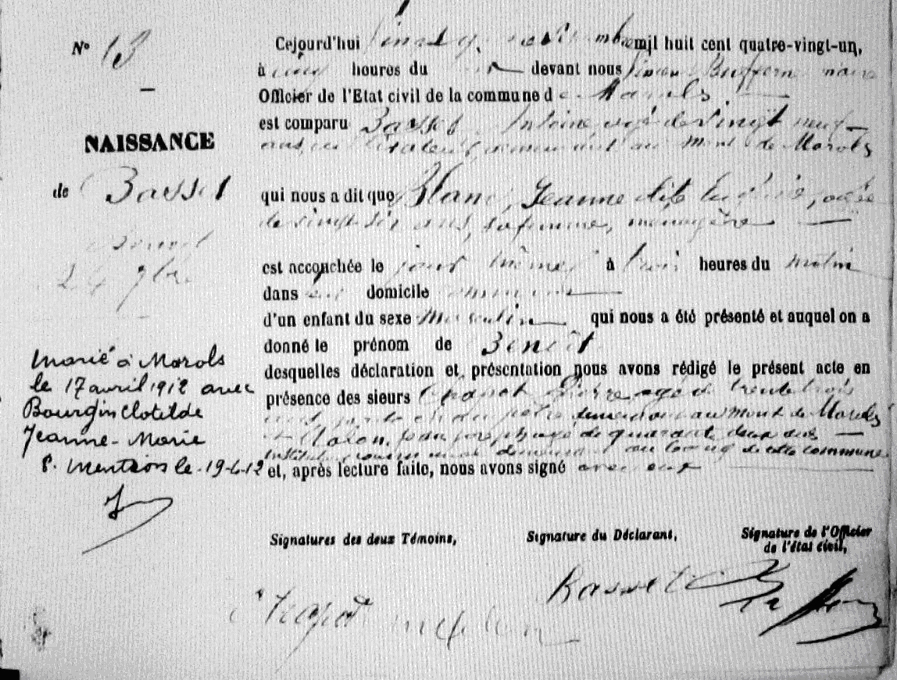 N° 13
NAISSANCE
de Basset
Benoit
24 9bre
Marié à Marols
le 17 avril 1912 avec
Bourgin Clotilde
Jeanne-Marie
P. Mention le 19-4-12
Cejourd'hui mil huit cent quatre-vingt-un,
à heures du devant nous maire
Officier de l'Etat civil de la commune de Marols
est comparu Basset Antoine, agé de vingt neuf
ans, demeurant au mont de Marols
qui nous a dit que Blanc, Jeanne dite agée
de vingt six ans, sa femme, menagère
est accouchée le jour même à trois heures du matin
dans domicile commune
d'un enfant du sexe masculin qui nous a été présenté et auquel on a
donné le prénom de Benoît
desquelles déclaration et présentation nous avons rédigé le présent acte en
présence des sieurs Chapot Pierre agé de trente trois
demeurant au mont de Marols
et agé de quarante deux ans
demeurant au bourg de cette commune
et, après lecture faite, nous avons signé avec eux
Signatures des deux Témoins,
Signature du Déclarant,
Signature de l'Officier
de l'état civil,
Chapot
Basset